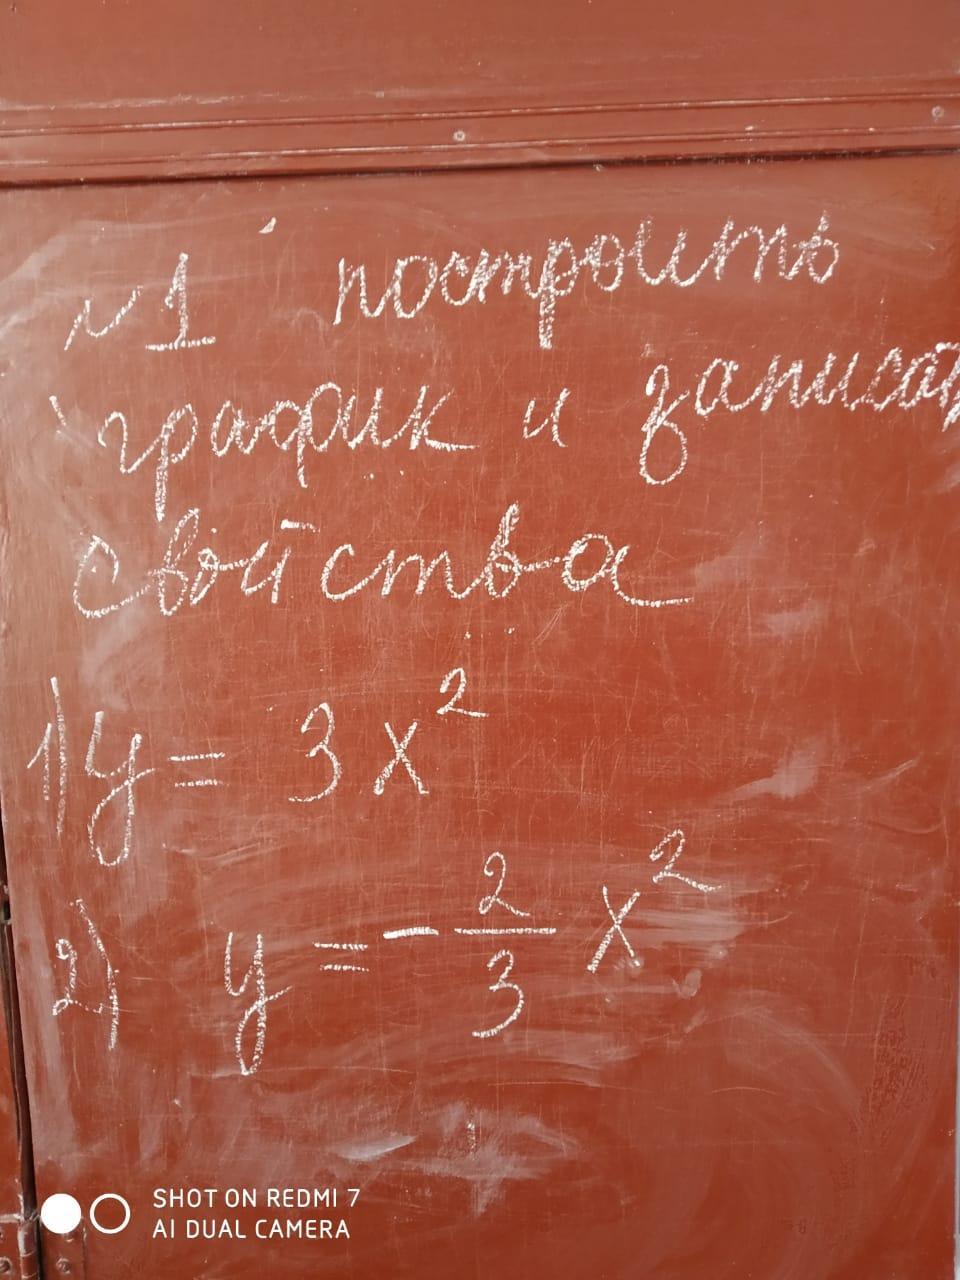 №1 построить
график и записат
свойства
1) y = 3x²
2) y = -2/3 x²
SHOT ON REDMI 7
AI DUAL CAMERA